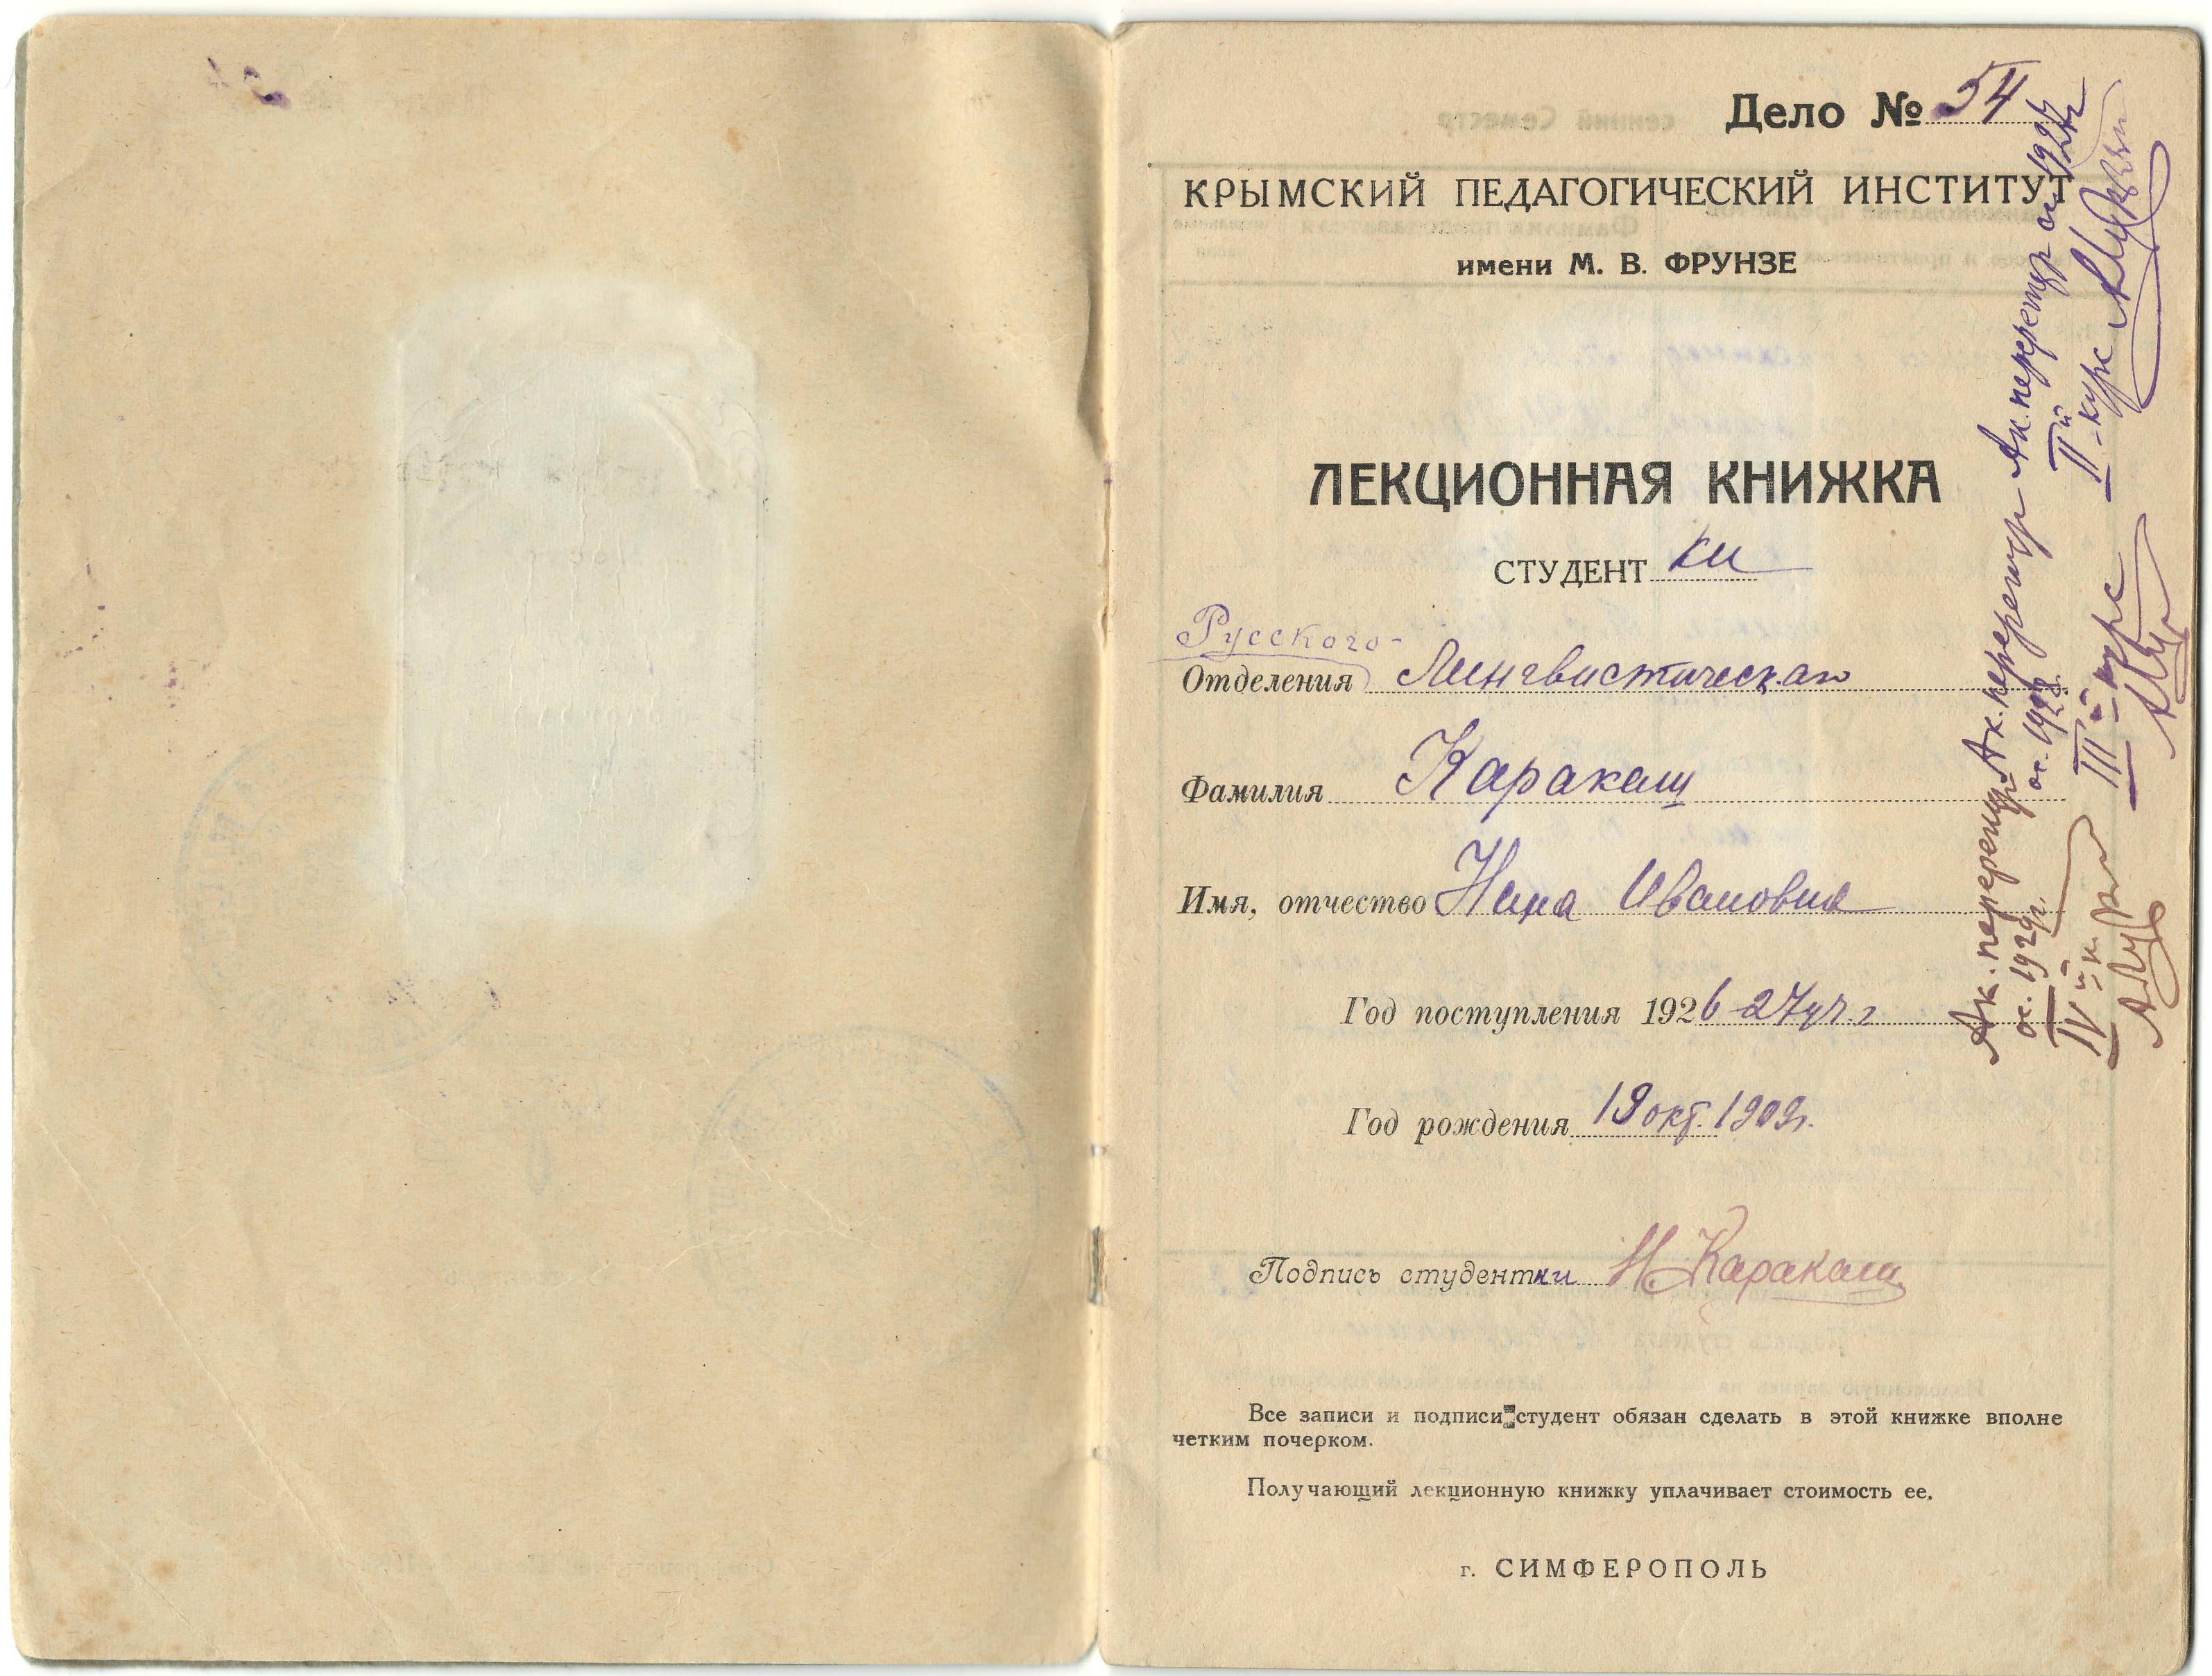 Дело № 54
КРЫМСКИЙ ПЕДАГОГИЧЕСКИЙ ИНСТИТУТ
имени М. В. ФРУНЗЕ
ЛЕКЦИОННАЯ КНИЖКА
СТУДЕНТ ки
Русского
Отделения Лингвистическая
Фамилия Каракаш
Имя, отчество Нина Ивановна
Год поступления 1926-27 уч. г
Год рождения 19 окт. 1909 г.
Подпись студентки Н. Каракаш
Все записи и подписи студент обязан сделать в этой книжке вполне
четким почерком.
Получающий лекционную книжку уплачивает стоимость ее.
г. СИМФЕРОПОЛЬ
Ак. перерегистр ос. 1927 г
IIй курс
Ак. перерегистр
ос. 1928
IIIй курс
Ак. перерегистр
ос. 1929 г.
IVй к.